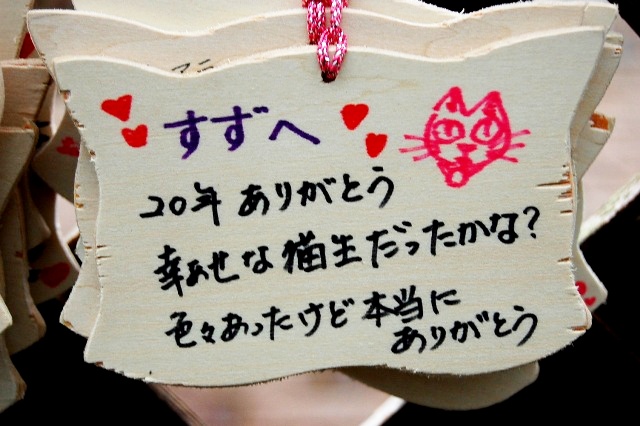 すずへ
20年 ありがとう
幸あせな猫生だったかな?
色々あったけど 本当に
ありがとう